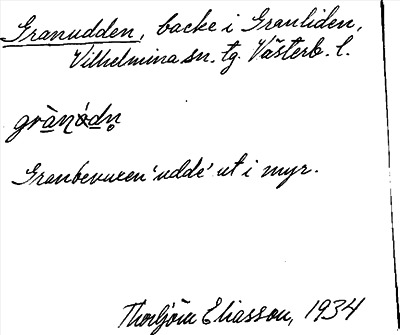 Granudden, backe i Granliden,
Vilhelmina sn. tg. Västerb. l.
grànúdn̥
Granbevuxen 'udde' ut i myr.
Thorbjörn Eliasson, 1934